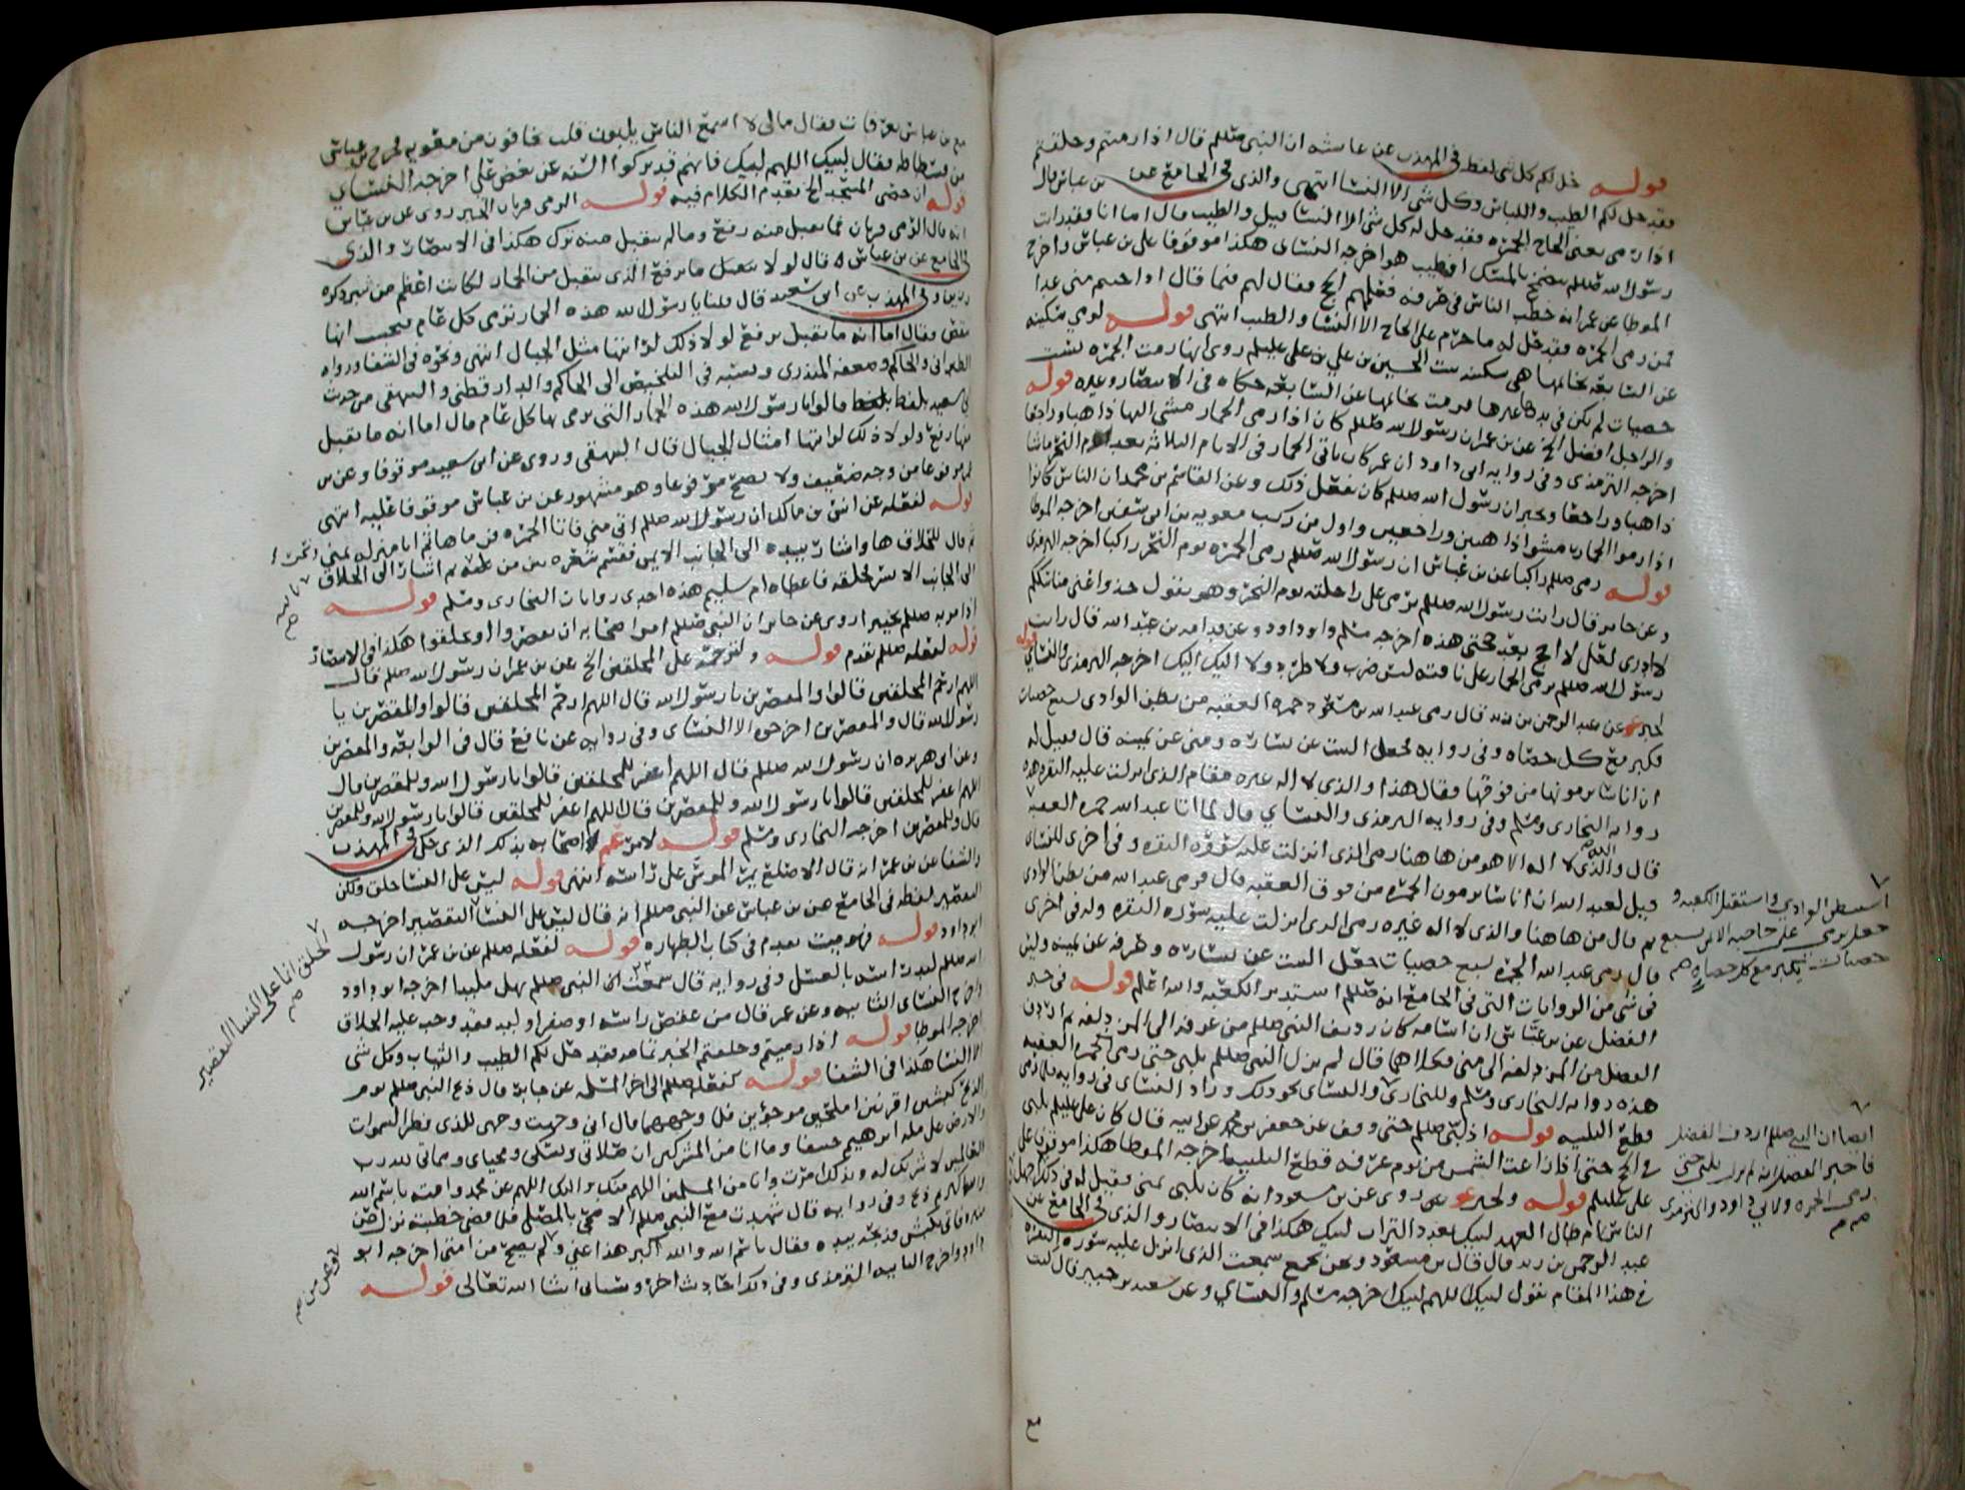 قوله حل لكم كل شي لفظه في المهذب عن عايشه ان النبي صللم قال اذا رميتم وحلقتم
فقد حل لكم الطيب واللباس وكل شي الا النسا انتهى والذي في الجامع عن بن عباس قال
اذا رمى يعني الحاج الجمره فقد حل له كل شي الا النسا قيل والطيب قال اما انا فقد رايت
رسول الله صللم يتضمخ بالمسك افطيب هو اخرجه النساي هكذا موقوفا على بن عباس واخرج
الموطا عن عمر انه خطب الناس في عرفه فعلمهم الحج فقال لهم فيما قال اذا جيتم منى غدا
فمن رمى الجمره فقد حل له ما حرم على الحاج الا النسا والطيب انتهى قوله لرمي سكينه
عن السابعه بخاتمها هي سكينه بنت الحسين بن علي بن علي عليلم روي انها رمت الجمره بست
حصيات لم يكن في يدها غيرها فرمت بخاتمها عن السابعه حكاه في الانتصار وغيره قوله
والراجل افضل الخ عن بن عمر ان رسول الله صللم كان اذا رمى الجمار مشى اليها ذاهبا وراجعا
اخرجه الترمذي وفي روايه ابي داود ان عمر كان ياتي الجمار في الايام الثلاثه بعد يوم النحر ماشا
ذاهبا وراجعا ويخبر ان رسول الله صللم كان يفعل ذلك وعن القاسم بن محمد ان الناس كانوا
اذا رموا الجمار مشوا ذاهبين وراجعين واول من ركب معويه بن ابي سفين اخرجه الموطا
قوله رمى صللم راكبا عن بن عباس ان رسول الله صللم رمى الجمره يوم النحر راكبا اخرجه الترمذي
وعن جابر قال رايت رسول الله صللم يرمي على راحلته يوم النحر وهو يقول خذوا عني مناسككم
لا ادري لعلي لا احج بعد حجتي هذه اخرجه مسلم وابو داود وعن قدامه بن عبد الله قال رايت
رسول الله صللم يرمي الجمار على ناقته ليس ضرب ولا طرد ولا اليك اليك اخرجه الترمذي والنساي قوله
لخبر عن عبد الرحمن بن يزيد قال رمى عبد الله بن مسعود جمره العقبه من بطن الوادي بسبع حصيات
فكبر مع كل حصاه وفي روايه فجعل البيت عن يساره ومنى عن يمينه قال فقيل له
ان اناسا يرمونها من فوقها فقال هذا والذي لا اله غيره مقام الذي انزلت عليه البقره هذه
روايه البخاري ومسلم وفي روايه الترمذي والنساي قال لما اتا عبد الله جمره العقبه
قال والذي لا اله الا هو من هاهنا رمى الذي انزلت عليه سوره البقره وفي اخرى للنساي
قيل لعبد الله ان اناسا يرمون الجمره من فوق العقبه قال فرمى عبد الله من بطن الوادي
ثم قال من هاهنا والذي لا اله غيره رمى الذي انزلت عليه سوره البقره وله في اخرى
قال رمى عبد الله الجمره بسبع حصيات جعل البيت عن يساره وعرفه عن يمينه وليس
في شي من الروايات التي في الجامع انه صللم استدبر الكعبه والله اعلم قوله في خبر
الفضل عن بن عباس ان اسامه كان رديف النبي صللم من عرفه الى المزدلفه ثم اردف
الفضل من المزدلفه الى منى فكلاهما قال لم يزل النبي صللم يلبي حتى رمى جمره العقبه
هذه روايه البخاري ومسلم وللبخاري والنساي نحو ذلك وزاد النساي في روايه فلما رمى
قطع التلبيه قوله اذ لبى صللم حتى وقف عن جعفر بن محمد عن ابيه قال كان علي عليلم يلبي
في الحج حتى اذا زاغت الشمس من يوم عرفه قطع التلبيه اخرجه الموطا هكذا موقوفا على
علي عليلم قوله ولخبر روي عن بن مسعود انه كان يلبي بمنى فقيل له في ذلك
الناس ام طال العهد لبيك بعدد التراب لبيك هكذا في الانتصار والذي في الجامع عن
عبد الرحمن بن يزيد قال قال بن مسعود ونحن بجمع سمعت الذي انزل عليه سوره البقره
في هذا المقام يقول لبيك اللهم لبيك اخرجه مسلم والنساي وعن سعيد بن جبير قال كنت
استبطن الوادي واستقبل الكعبه و
جعل يرمي على حاجبه الايمن بسبع
حصيات يكبر مع كل حصاه صح
ايضا ان النبي صللم اردف الفضل
فاخبر الفضل انه لم يزل يلبي حتى
رمى الجمره ولابي داود والترمذي
مع
مع بن عباس بعرفات فقال مالي لا اسمع الناس يلبون قلت يخافون من معويه فخرج بن عباس
من فسطاطه فقال لبيك اللهم لبيك فانهم قد تركوا السنه عن بغض علي اخرجه النساي
قوله ان حصى المسجد الخ تقدم الكلام فيه قوله الرمي قربان الخبر روي عن بن عباس
انه قال الرمي قربان فما تقبل منه رفع وما لم يتقبل منه ترك هكذا في الانتصار والذي
في الجامع عن بن عباس قال لولا يتقبل ما يرفع الذي يتقبل من الجمار لكانت اعظم من ثبير ذكره
رزين وفي المهذب عن ابي سعيد قال قلنا يا رسول الله هذه الجمار ترمى كل عام فنحسب انها
تنقص فقال اما انه ما تقبل يرفع لولا ذلك لرايتها مثل الجبال انتهى ونحوه في الشفا ورواه
الطبراني والحاكم وضعفه المنذري ونسبه في التلخيص الى الحاكم والدارقطني والبيهقي من حديث
ابي سعيد بلفظ قالوا يا رسول الله هذه الجمار التي يرمى بها كل عام قال اما انه ما تقبل
منها رفع ولولا ذلك لرايتها امثال الجبال قال البيهقي وروي عن ابي سعيد موقوفا وعن بن
عمر مرفوعا من وجه ضعيف ولا يصح مرفوعا وهو مشهور عن بن عباس موقوفا عليه انتهى
قوله لفعله عن انس بن مالك ان رسول الله صللم اتى منى فاتا الجمره فرماها ثم اتا منزله بمنى ونحر
ثم قال للحلاق ها واشار بيده الى الجانب الايمن فقسم شعره بين من يليه ثم اشار الى الحلاق
الى الجانب الايسر فحلقه فاعطاه ام سليم هذه احدى روايات البخاري ومسلم قوله
اذ امر به صللم تخييرا روي عن جابر ان النبي صللم امر اصحابه ان يقصروا او يحلقوا هكذا في الانتصار
قوله لفعله صللم تقدم قوله ولترحمه على المحلقين الخ عن بن عمر ان رسول الله صللم قال
اللهم ارحم المحلقين قالوا والمقصرين يا رسول الله قال اللهم ارحم المحلقين قالوا والمقصرين يا
رسول الله قال والمقصرين اخرجوه الا النساي وفي روايه عن نافع قال في الرابعه والمقصرين
وعن ابي هريره ان رسول الله صللم قال اللهم اغفر للمحلقين قالوا يا رسول الله وللمقصرين قال
اللهم اغفر للمحلقين قالوا يا رسول الله وللمقصرين قال اللهم اغفر للمحلقين قالوا يا رسول الله وللمقصرين
قال وللمقصرين اخرجه البخاري ومسلم قوله لامر اصحابه بذلك الذي حكى في المهذب
والشفا عن بن عمر انه قال الاصلع يمر الموسى على راسه انتهى قوله ليس على النسا حلق ولكن
التقصير لفظه في الجامع عن بن عباس عن النبي صللم انه قال ليس على النسا التقصير اخرجه
ابو داود قوله فهو ميت تقدم في كتاب الطهاره قوله لفعله صللم عن بن عمر ان رسول
الله صللم لبد راسه بالعسل وفي روايه قال سمعت النبي صللم يهل ملبدا اخرجه ابو داود
واخرج النساي الثانيه وعن عمر قال من عقص راسه او ضفر او لبد فقد وجب عليه الحلاق
اخرجه الموطا قوله اذا رميتم وحلقتم الخبر تمامه فقد حل لكم الطيب والثياب وكل شي
الا النسا هكذا في الشفا قوله كفعله صللم الى اخر المسله عن جابر قال ذبح النبي صللم يوم
الذبح كبشين اقرنين املحين موجوين فلما وجههما قال اني وجهت وجهي للذي فطر السموات
والارض على مله ابرهيم حنيفا وما انا من المشركين ان صلاتي ونسكي ومحياي ومماتي لله رب
العالمين لا شريك له وبذلك امرت وانا من المسلمين اللهم منك ولك اللهم عن محمد وامته باسم الله
والله اكبر ثم ذبح وفي روايه قال شهدت مع النبي صللم الاضحى بالمصلى فلما قضى خطبته نزل عن
منبره فاتي بكبش فذبحه بيده وقال باسم الله والله اكبر هذا عني ولم يضح من امتي اخرجه ابو
داود واخرج الثانيه الترمذي وفي ذلك احاديث اخر وستاتي انشا الله تعالى قوله
الحلق انما على النسا التقصير